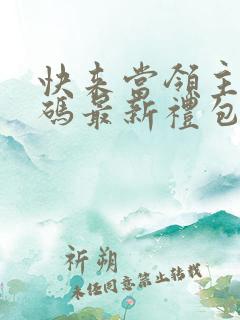 快来當領主
碼最新禮包
祈朔
未經同意禁止转载